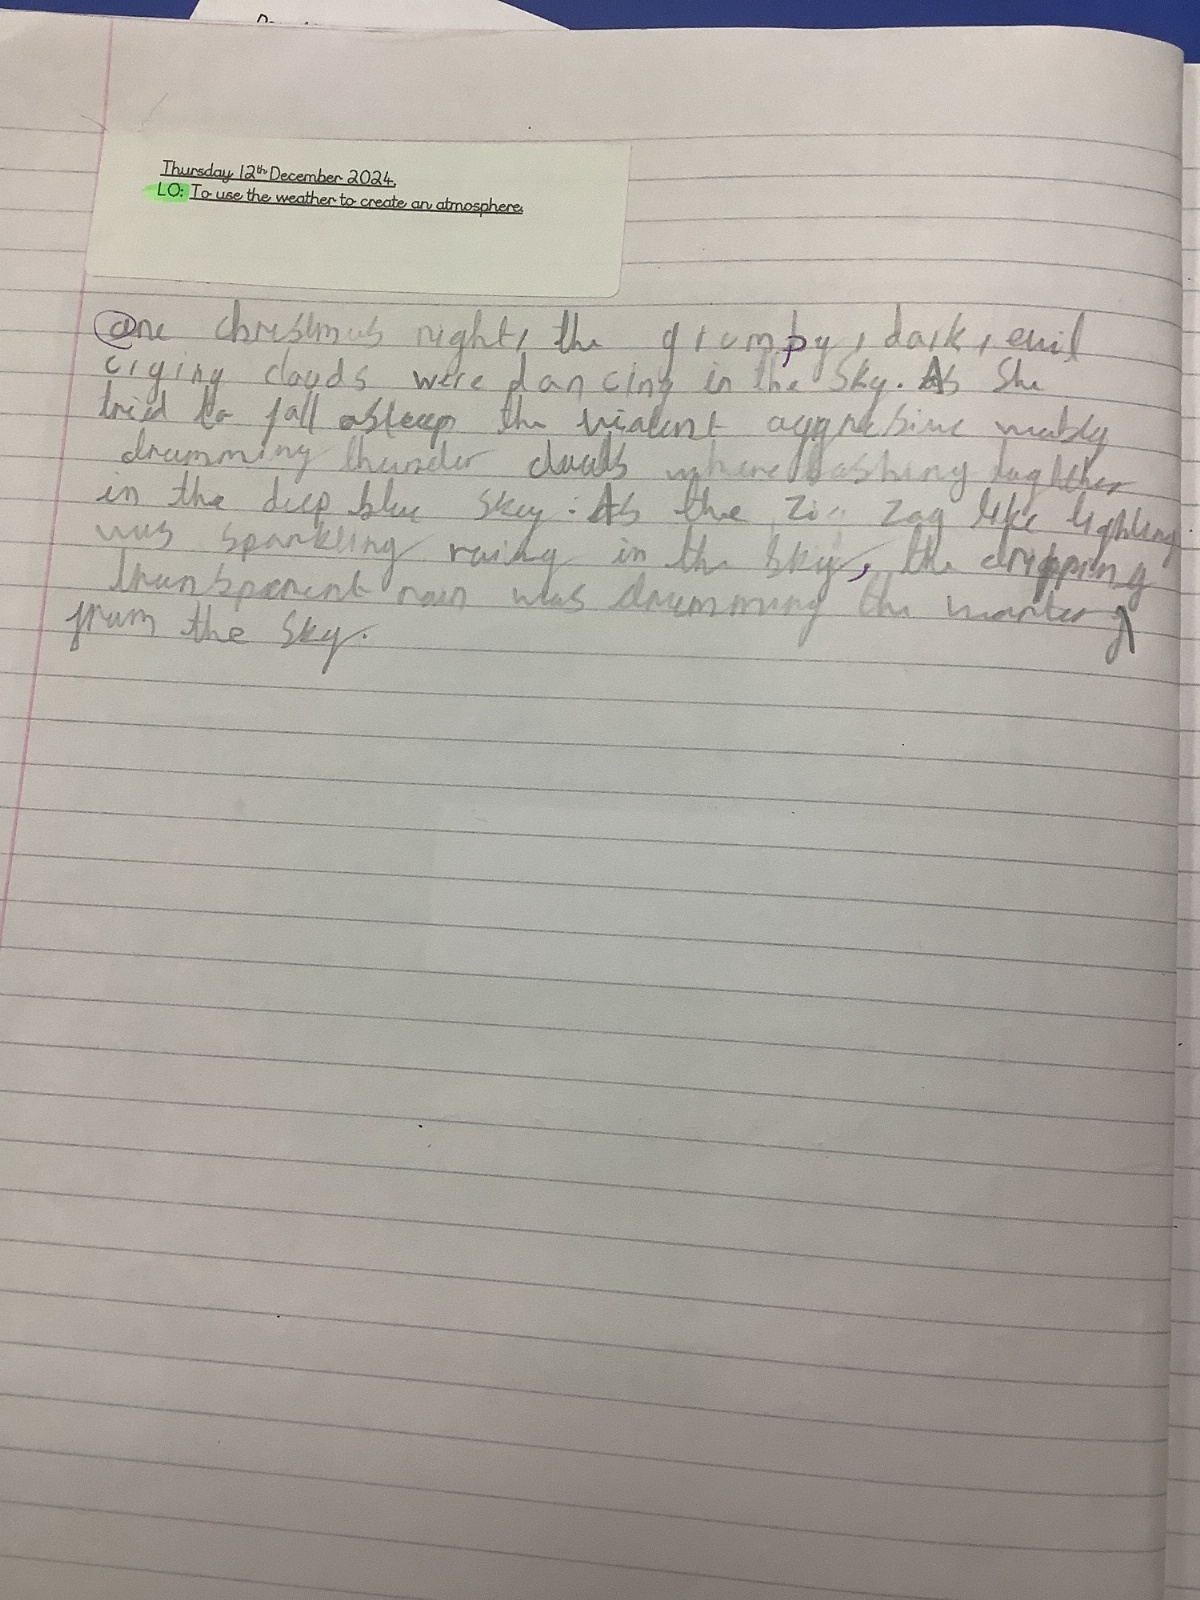 Thursday 12th December 2024.
LO: To use the weather to create an atmosphere.
one christmas night, the grumpy, dark, evil
crying clouds were dancing in the sky. As she
tried to fall asleep the vialent aggresive
drumming thunder clouds where bashing
in the deep blue sky. As the zig zag like lighting
was sparkling in the sky, the dripping
transparent rain was drumming the
from the sky.